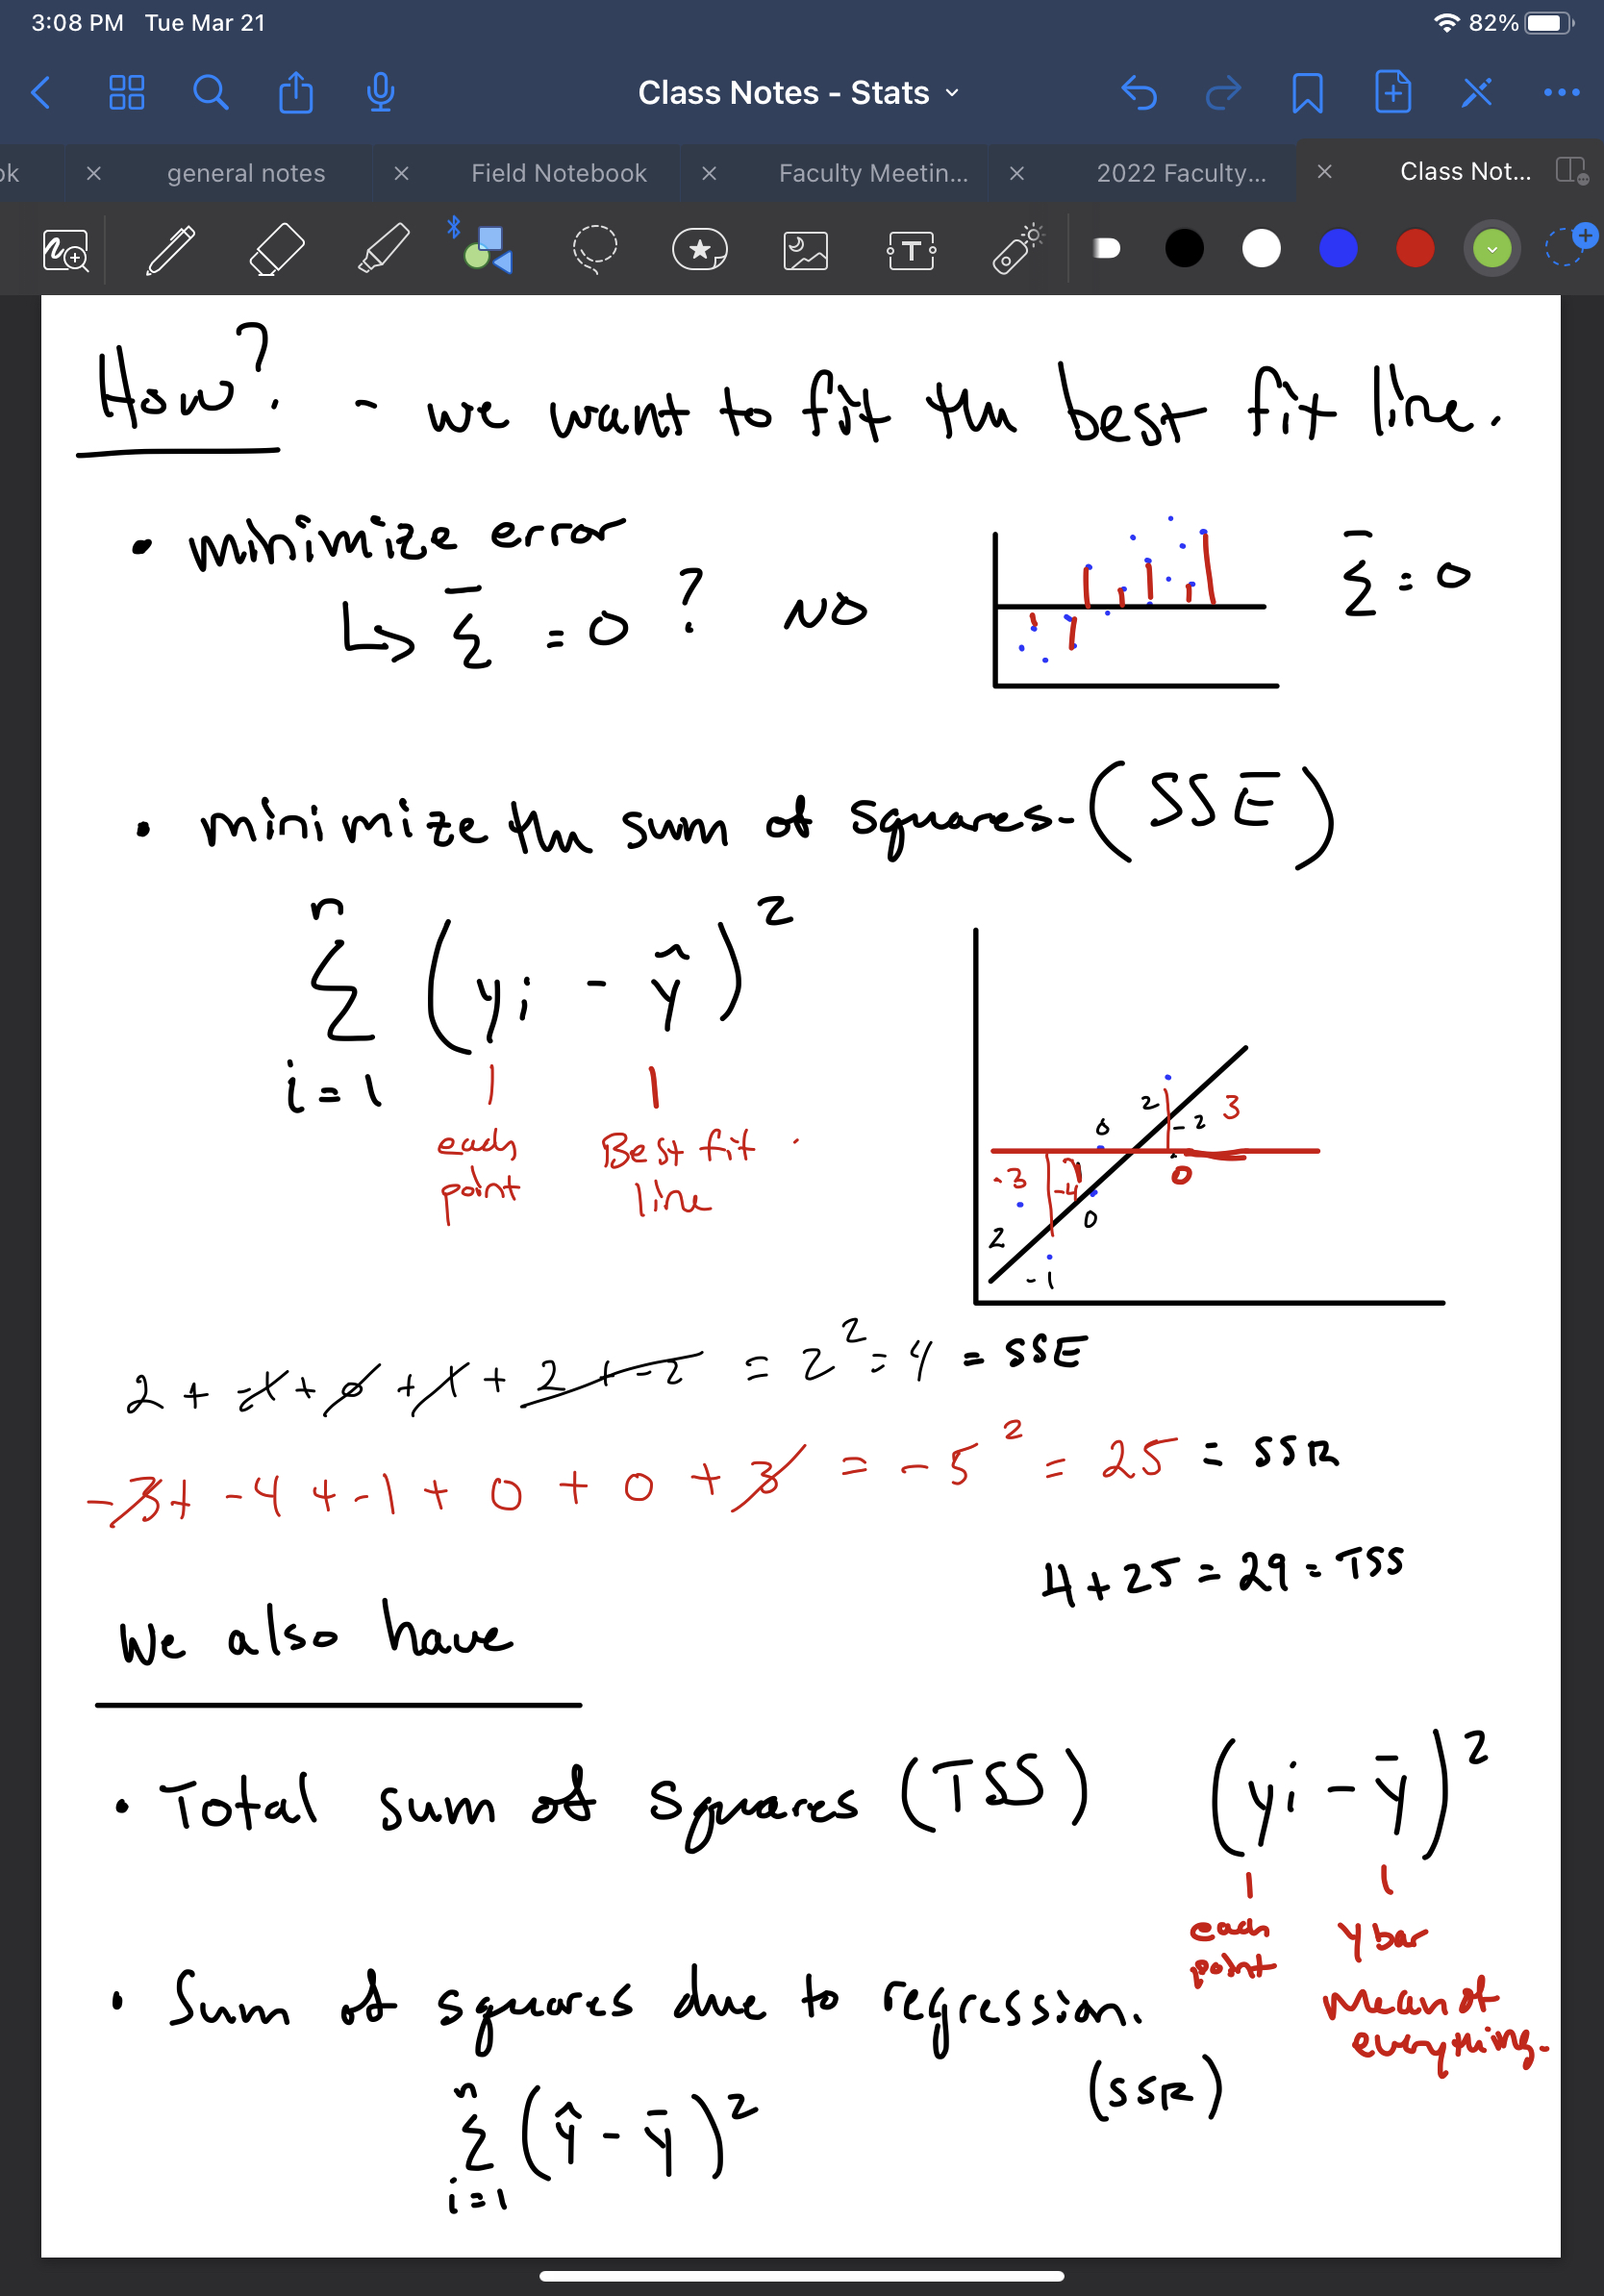 3:08 PM Tue Mar 21
82%
Class Notes - Stats
ok
general notes
Field Notebook
Faculty Meetin...
2022 Faculty...
Class Not...
T
How? - we want to fit the best fit line.
• minimize error
↳ Σ̄ = 0 ? NO
Σ̄ = 0
• minimize the sum of squares - (SSE)
n
Σ (yi - ŷ)²
i = 1
each point
Best fit line
2
-2
3
0
0
-3
-4
0
2
-1
2 + -1 + 0 + 1 + 2 + -2 = 2² = 4 = SSE
-3 + -4 + -1 + 0 + 0 + 3 = -5² = 25 = SSR
4 + 25 = 29 = TSS
We also have
• Total sum of squares (TSS) (yi - ȳ)²
each point
y bar
mean of everything.
• Sum of squares due to regression.
(SSR)
n
Σ (ŷ - ȳ)²
i = 1